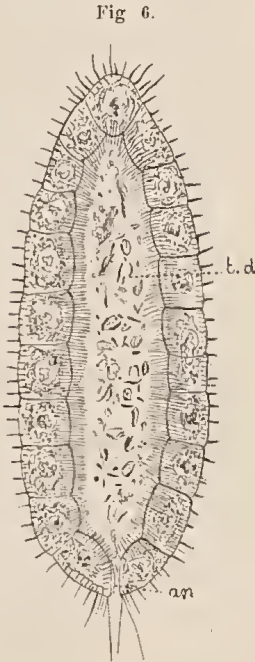 Fig 6.
t.d
an